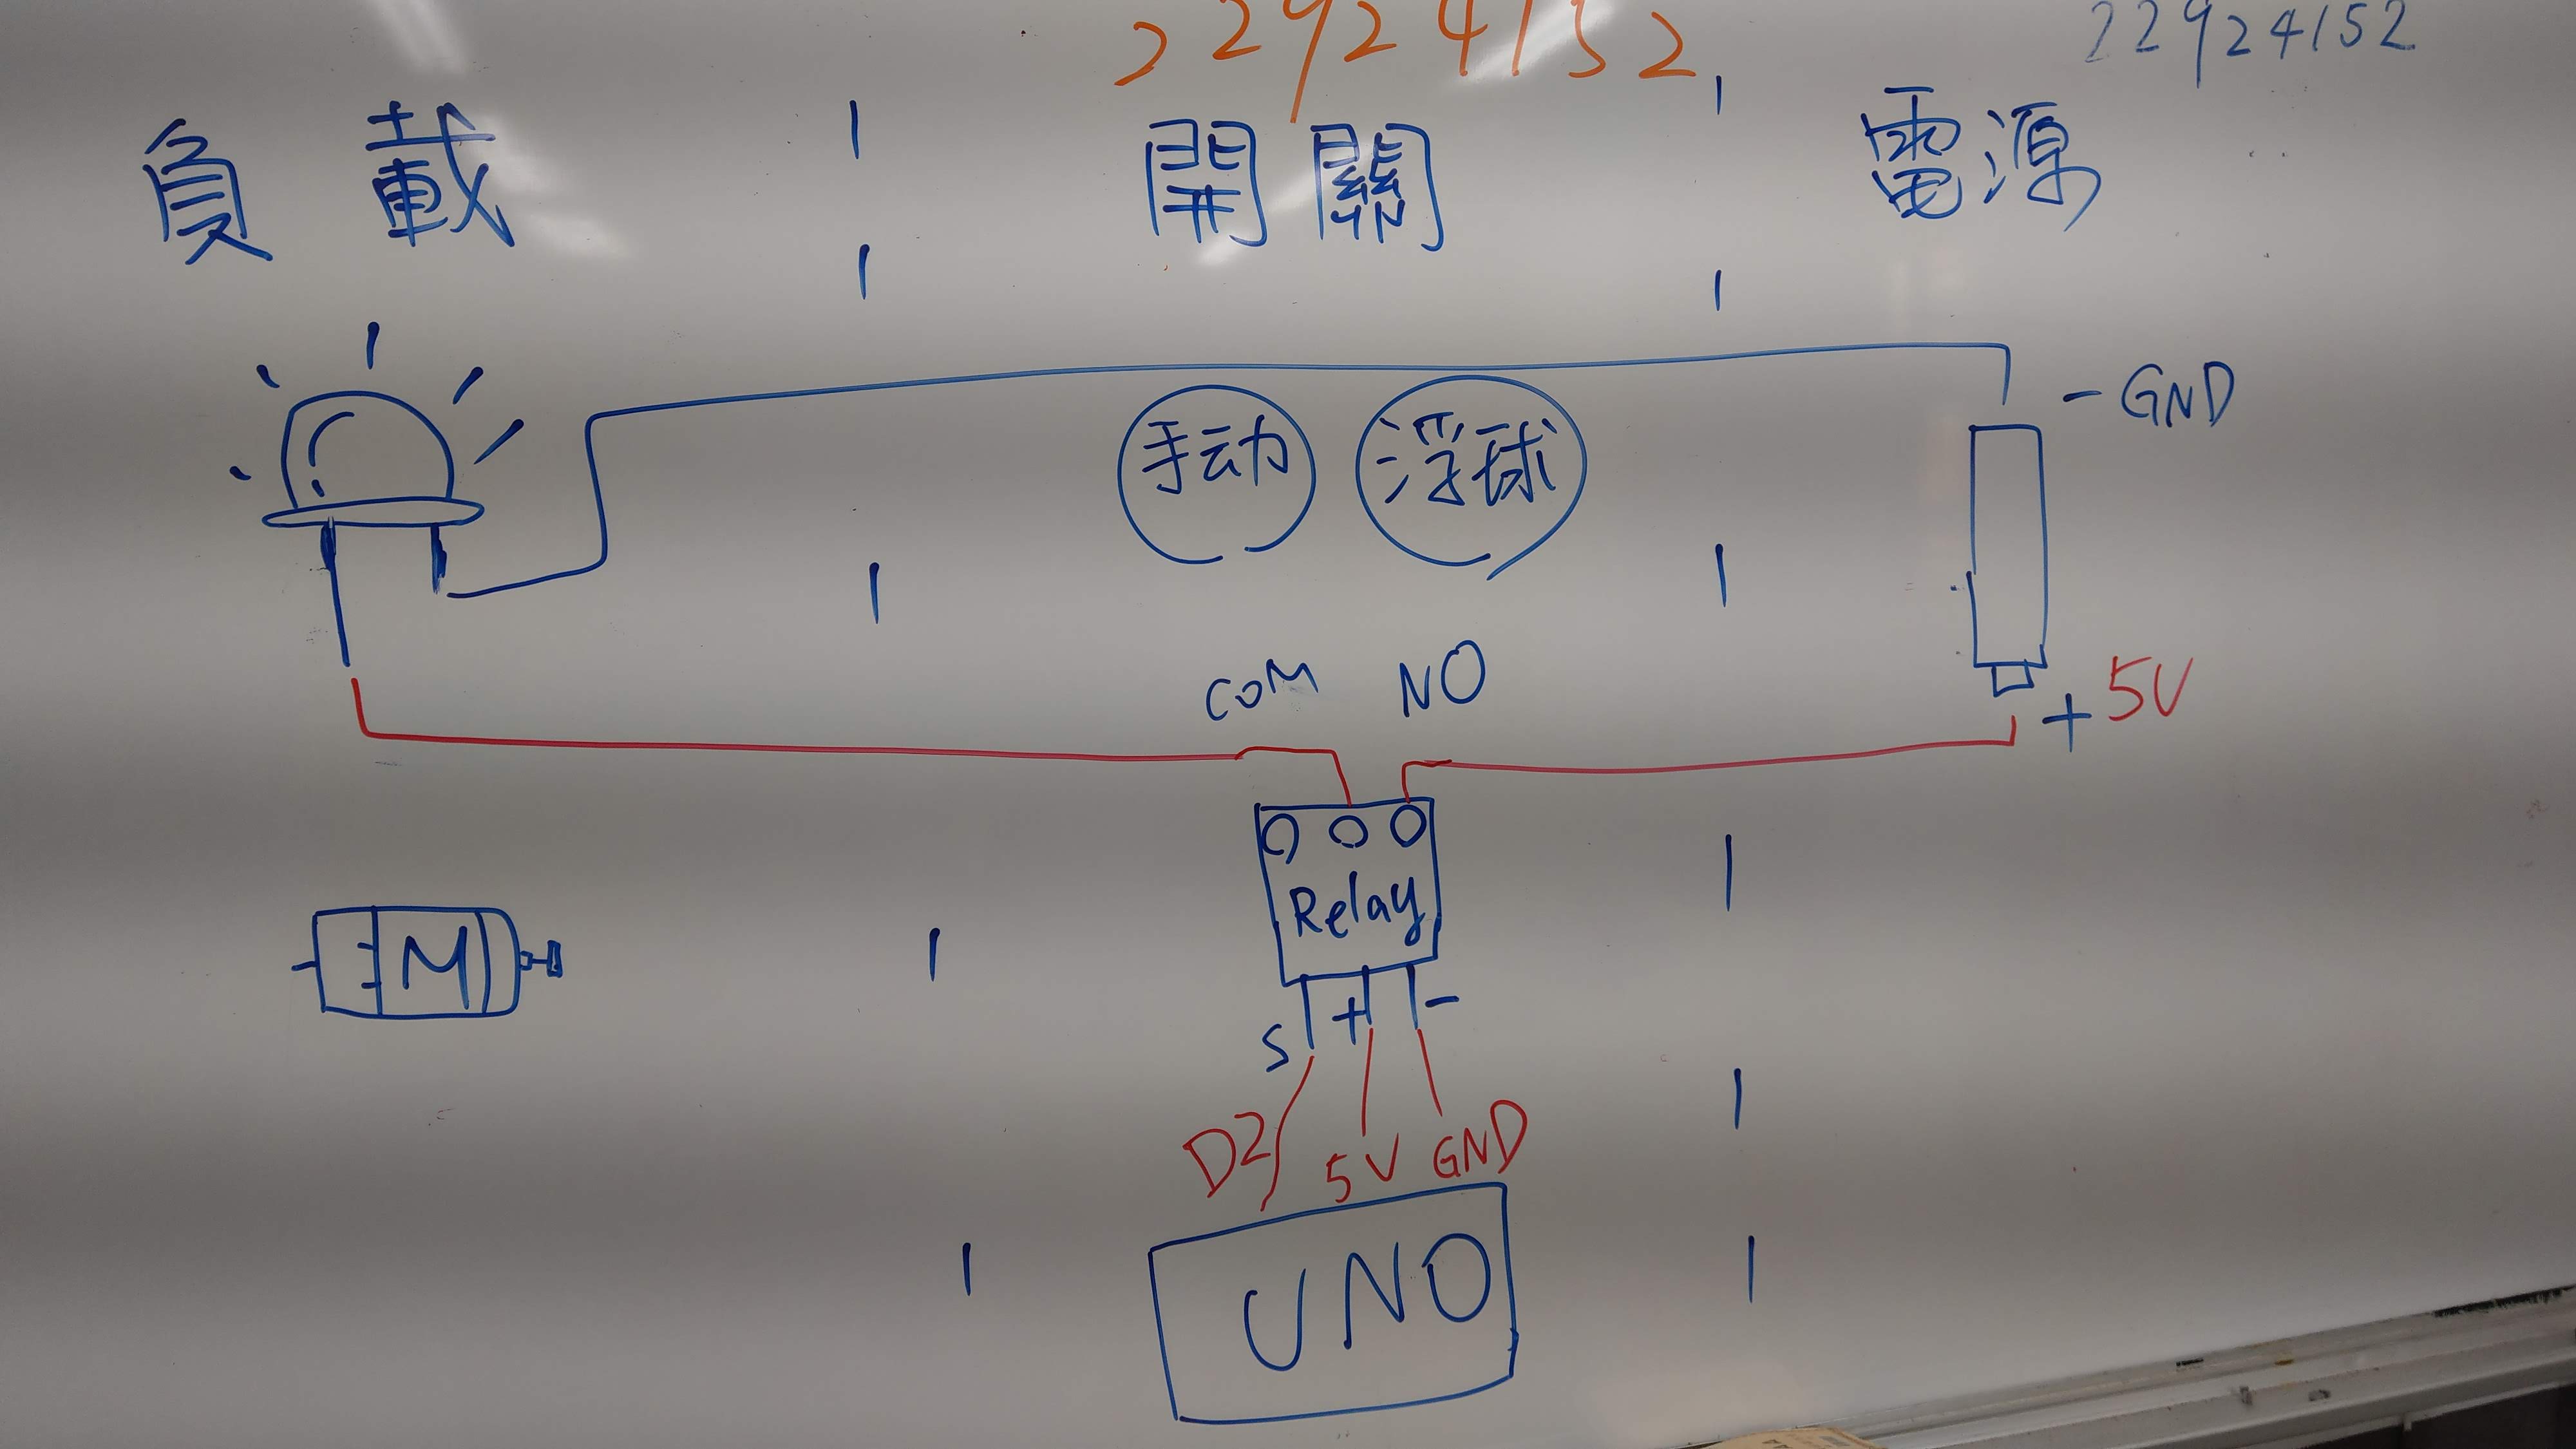 22924152
22924152
負載 開關 電源
- GND
手动 浮球
COM NO
+ 5V
Relay
M
S + -
D2 5V GND
UNO